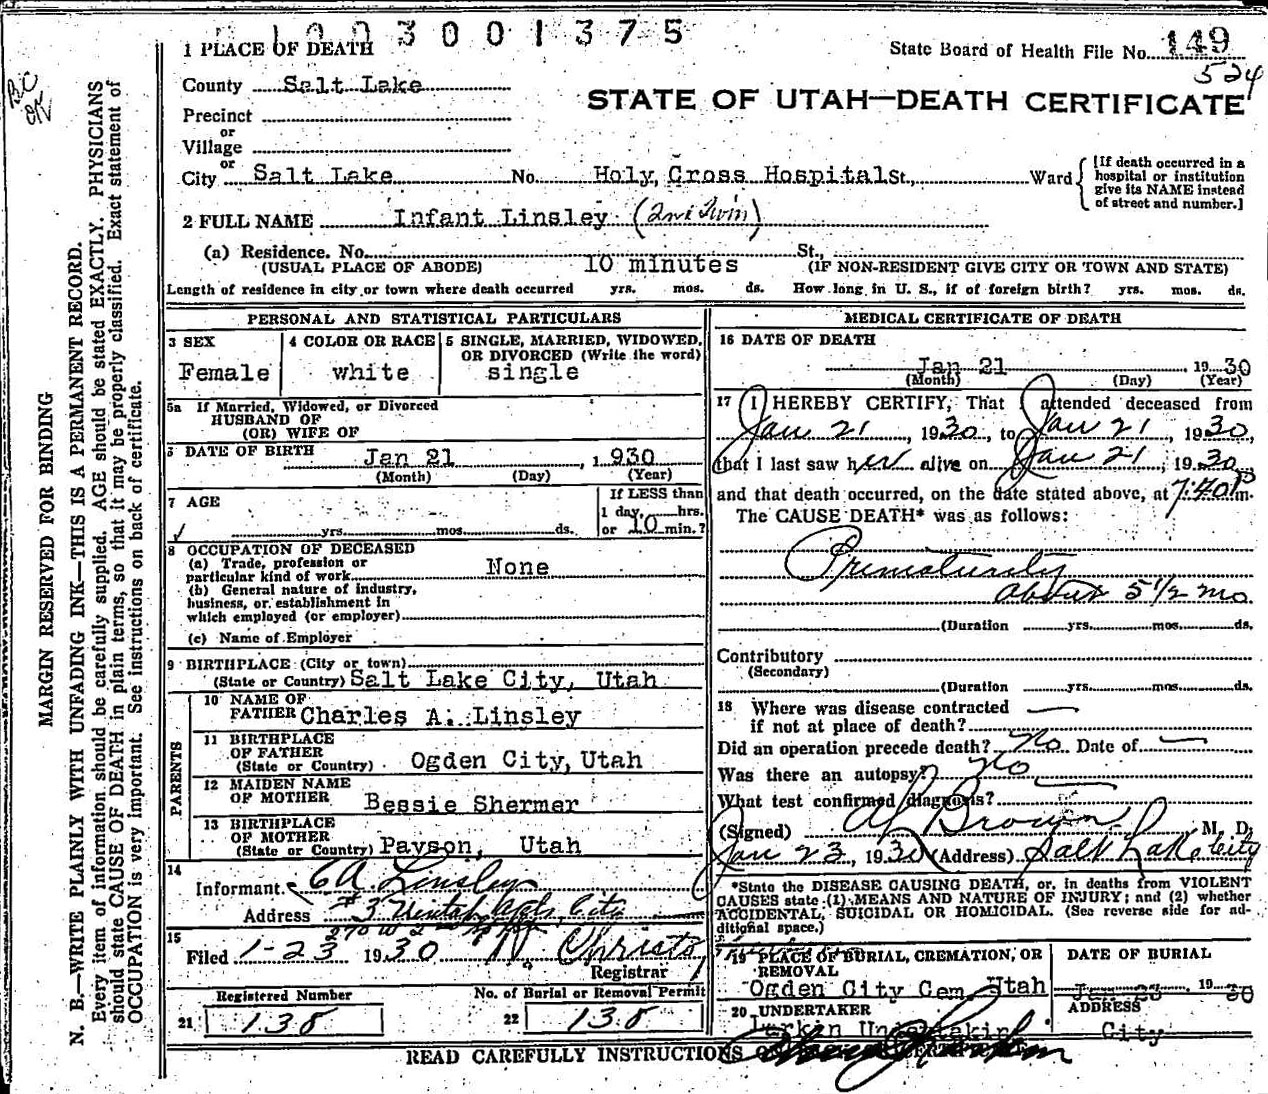 1003001375
1 PLACE OF DEATH
State Board of Health File No. 149
524
BC
OK
County Salt Lake
STATE OF UTAH—DEATH CERTIFICATE
Precinct
or
Village
or
City Salt Lake No. Holy Cross Hospital St., Ward
[If death occurred in a
hospital or institution
give its NAME instead
of street and number.]
2 FULL NAME Infant Linsley (2nd Twin)
(a) Residence. No. St.,
(USUAL PLACE OF ABODE) 10 minutes (IF NON-RESIDENT GIVE CITY OR TOWN AND STATE)
Length of residence in city or town where death occurred yrs. mos. ds. How long in U. S., if of foreign birth? yrs. mos. ds.
MARGIN RESERVED FOR BINDING
N. B.—WRITE PLAINLY WITH UNFADING INK—THIS IS A PERMANENT RECORD.
Every item of information should be carefully supplied. AGE should be stated EXACTLY. PHYSICIANS
should state CAUSE OF DEATH in plain terms, so that it may be properly classified. Exact statement of
OCCUPATION is very important. See instructions on back of certificate.
PERSONAL AND STATISTICAL PARTICULARS
3 SEX
Female
4 COLOR OR RACE
white
5 SINGLE, MARRIED, WIDOWED,
OR DIVORCED (Write the word)
single
5a If Married, Widowed, or Divorced
HUSBAND OF
(OR) WIFE OF
6 DATE OF BIRTH
Jan 21 , 1930
(Month) (Day) (Year)
7 AGE
yrs. mos. ds.
If LESS than
1 day, hrs.
or 10 min.?
8 OCCUPATION OF DECEASED
(a) Trade, profession or
particular kind of work None
(b) General nature of industry,
business, or establishment in
which employed (or employer)
(c) Name of Employer
9 BIRTHPLACE (City or town)
(State or Country) Salt Lake City, Utah
PARENTS
10 NAME OF
FATHER Charles A. Linsley
11 BIRTHPLACE
OF FATHER
(State or Country) Ogden City, Utah
12 MAIDEN NAME
OF MOTHER Bessie Shermer
13 BIRTHPLACE
OF MOTHER
(State or Country) Payson, Utah
14
Informant C A. Linsley
Address #3 Uintah Apts, City
15
Filed 1-23 1930
Registrar
Registered Number
21 138
No. of Burial or Removal Permit
22 138
MEDICAL CERTIFICATE OF DEATH
16 DATE OF DEATH
Jan 21 , 1930
(Month) (Day) (Year)
17 I HEREBY CERTIFY, That I attended deceased from
Jan 21, 1930, to Jan 21, 1930,
that I last saw her alive on Jan 21, 1930
and that death occurred, on the date stated above, at 7:40 P m.
The CAUSE DEATH* was as follows:
Prematurity
about 5 1/2 mo
(Duration yrs. mos. ds.
Contributory
(Secondary)
(Duration yrs. mos. ds.
18 Where was disease contracted
if not at place of death?
Did an operation precede death? No Date of —
Was there an autopsy? No
What test confirmed diagnosis?
(Signed) Brown, M. D.
Jan 23, 1930 (Address) Salt Lake City
*State the DISEASE CAUSING DEATH, or, in deaths from VIOLENT
CAUSES state (1) MEANS AND NATURE OF INJURY; and (2) whether
ACCIDENTAL, SUICIDAL OR HOMICIDAL. (See reverse side for ad-
ditional space.)
19 PLACE OF BURIAL, CREMATION, OR
REMOVAL
Ogden City Cem, Utah
DATE OF BURIAL
Jan 23 1930
20 UNDERTAKER
Larkin Undertaking
ADDRESS
City
READ CAREFULLY INSTRUCTIONS